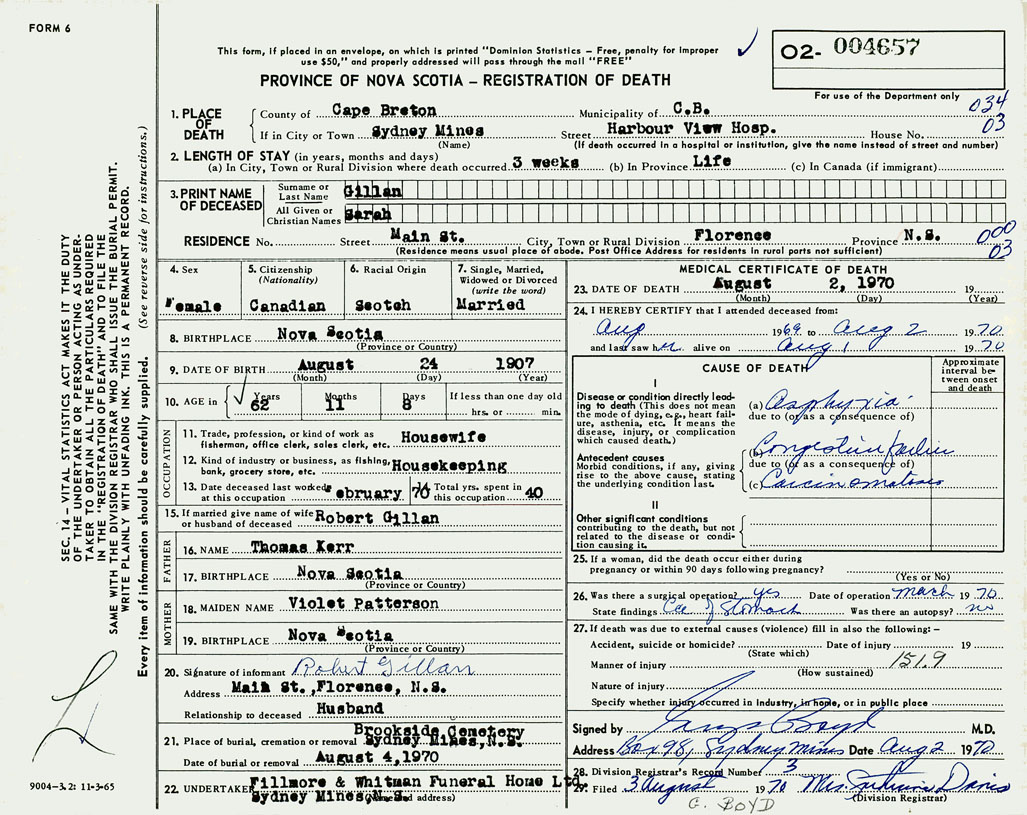 FORM 6
This form, if placed in an envelope, on which is printed "Dominion Statistics – Free, penalty for improper
use $50," and properly addressed will pass through the mail "FREE"
O2- 004657
PROVINCE OF NOVA SCOTIA – REGISTRATION OF DEATH
For use of the Department only
034
03
1. PLACE OF DEATH
County of Cape Breton Municipality of C.B.
If in City or Town Sydney Mines Street Harbour View Hosp. House No.
(Name) (If death occurred in a hospital or institution, give the name instead of street and number)
2. LENGTH OF STAY (in years, months and days)
(a) In City, Town or Rural Division where death occurred 3 weeks (b) In Province Life (c) In Canada (if immigrant)
3. PRINT NAME OF DECEASED
Surname or Last Name Gillan
All Given or Christian Names Sarah
RESIDENCE No. Street Main St. City, Town or Rural Division Florence Province N.S.
(Residence means usual place of abode. Post Office Address for residents in rural parts not sufficient)
000
03
4. Sex
Female
5. Citizenship
(Nationality)
Canadian
6. Racial Origin
Scotch
7. Single, Married,
Widowed or Divorced
(write the word)
Married
8. BIRTHPLACE Nova Scotia
(Province or Country)
9. DATE OF BIRTH August 24 1907
(Month) (Day) (Year)
10. AGE in Years Months Days If less than one day old
62 11 8 hrs. or min.
OCCUPATION
11. Trade, profession, or kind of work as
fisherman, office clerk, sales clerk, etc. Housewife
12. Kind of industry or business, as fishing,
bank, grocery store, etc. Housekeeping
13. Date deceased last worked
at this occupation February 70
14. Total yrs. spent in
this occupation 40
15. If married give name of wife
or husband of deceased Robert Gillan
FATHER
16. NAME Thomas Kerr
17. BIRTHPLACE Nova Scotia
(Province or Country)
MOTHER
18. MAIDEN NAME Violet Patterson
19. BIRTHPLACE Nova Scotia
(Province or Country)
20. Signature of informant Robert Gillan
Address Main St.,Florence, N.S.
Relationship to deceased Husband
21. Place of burial, cremation or removal Brookside Cemetery
Sydney Mines,N.S.
Date of burial or removal August 4,1970
22. UNDERTAKER Fillmore & Whitman Funeral Home Ltd.
Sydney Mines,N.S.
(Name and address)
MEDICAL CERTIFICATE OF DEATH
23. DATE OF DEATH August 2, 1970 19
(Month) (Day) (Year)
24. I HEREBY CERTIFY that I attended deceased from:
Aug 1969 to Aug 2 1970
and last saw her alive on Aug 1 1970
CAUSE OF DEATH
Approximate
interval be-
tween onset
and death
I
Disease or condition directly lead-
ing to death (This does not mean
the mode of dying, e.g., heart fail-
ure, asthenia, etc. It means the
disease, injury, or complication
which caused death.)
(a) Asphyxia
due to (or as a consequence of)
Antecedent causes
Morbid conditions, if any, giving
rise to the above cause, stating
the underlying condition last.
(b) Congestive failure
due to (or as a consequence of)
(c) Carcinomatosis
II
Other significant conditions
contributing to the death, but not
related to the disease or condi-
tion causing it.
25. If a woman, did the death occur either during
pregnancy or within 90 days following pregnancy?
(Yes or No)
26. Was there a surgical operation? yes Date of operation March 1970
State findings Ca of Stomach Was there an autopsy? no
27. If death was due to external causes (violence) fill in also the following: –
Accident, suicide or homicide? Date of injury 19
(State which)
151.9
Manner of injury
(How sustained)
Nature of injury
Specify whether injury occurred in industry, in home, or in public place
Signed by Boyd M.D.
Address Box 98, Sydney Mines Date Aug 2 1970
28. Division Registrar's Record Number 3
29. Filed 3 August 1970 Mrs. Davis
(Division Registrar)
G. BOYD
SEC. 14 – VITAL STATISTICS ACT MAKES IT THE DUTY
OF THE UNDERTAKER OR PERSON ACTING AS UNDER-
TAKER TO OBTAIN ALL THE PARTICULARS REQUIRED
IN THE "REGISTRATION OF DEATH" AND TO FILE THE
SAME WITH THE DIVISION REGISTRAR WHO SHALL ISSUE THE BURIAL PERMIT.
WRITE PLAINLY WITH UNFADING INK. THIS IS A PERMANENT RECORD.
Every item of information should be carefully supplied. (See reverse side for instructions.)
9004–3.2: 11-3-65